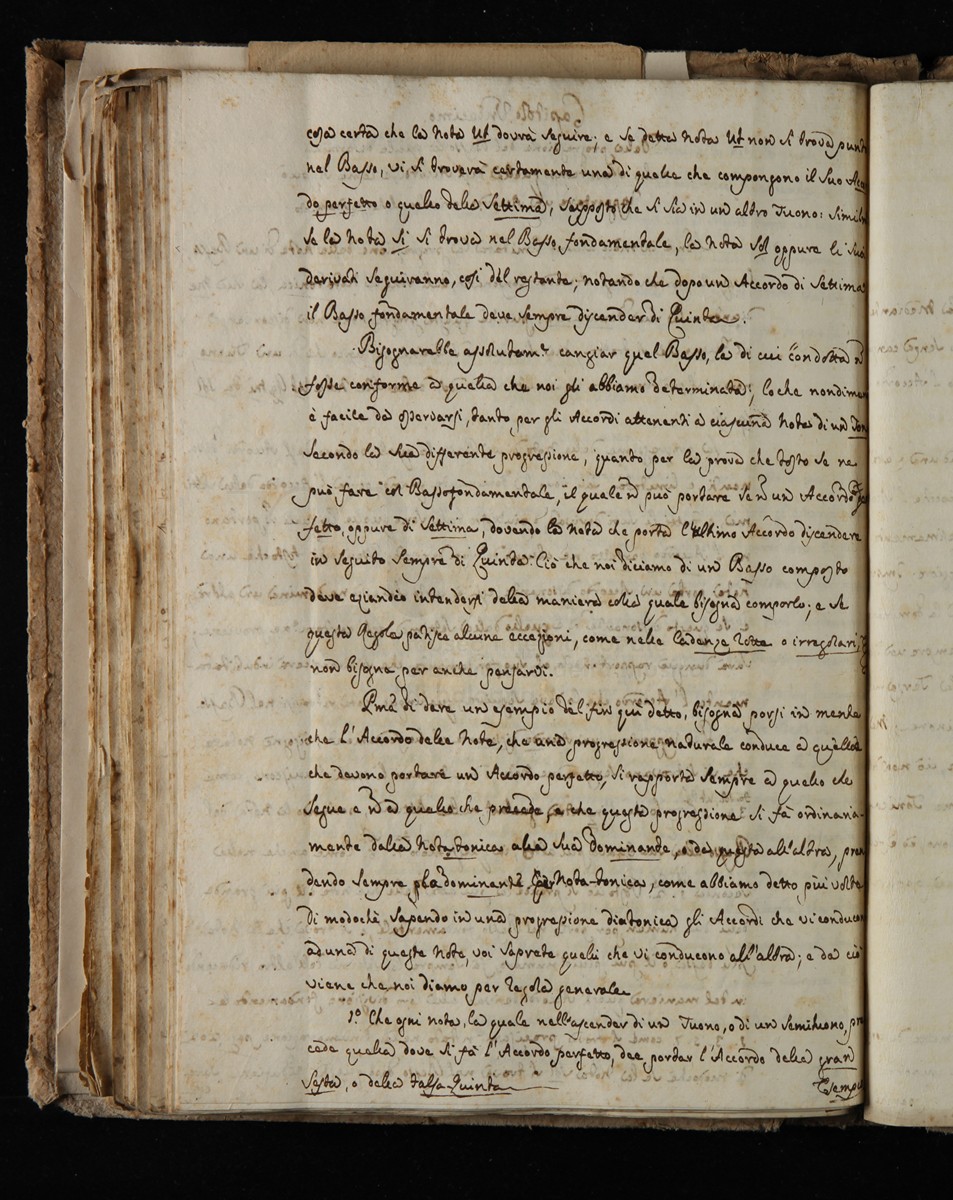 cosa certa che la nota Ut dovrà seguire; e se detta nota Ut non si trova punto
nel Basso, vi si troverà certamente una di quelle che compongono il suo Accor
do perfetto o quello della Settima, supposto che si sia in un altro Tuono: simil
se la nota Si si trova nel Basso fondamentale, la nota Sol oppure li suoi
derivati seguiranno, così del restante; notando che dopo un Accordo di Settima
il Basso fondamentale deve sempre discender di Quinta.
Bisognarebbe assolutamte cangiar quel Basso, la di cui condotta ñ
fosse conforme a quella che noi gli abbiamo determinata; lo che nondimen
è facile da osservarsi, tanto per gli Accordi attenenti a ciascuna nota di un Ton
secondo la sua differente progressione, quanto per la prova che tosto se ne
può fare col Basso fondamentale, il quale ñ può portare se ñ un Accordo per
fetto, oppure di Settima, dovendo la nota che porta l'ultimo Accordo discendere
in seguito sempre di Quinta. Ciò che noi diciamo di un Basso composto
deve eziandio intendersi della maniera colla quale bisogna comporlo; e se
questa Regola patisce alcune eccezioni, come nelle Cadenze rotte o irregolari,
non bisogna per anche pensarvi.
Pma di dare un esempio del fin qui detto, bisogna porsi in mente
che l'Accordo delle Note, che una progressione naturale conduce a quelle
che devono portare un Accordo perfetto, si rapporta sempre a quello che
segue e ñ a quello che precede, e che questa progressione si fà ordinaria-
mente dalla Nota tonica alla sua dominante, o da questa all'altra, pren
dendo sempre la dominante Nota-tonica, come abbiamo detto più volte
Di modochè sapendo in una progressione diatonica gli Accordi che vi conducon
ad una di queste Note, voi saprete quelli che vi conducono all'altra; e da ciò
viene che noi diamo per regola generale
1.º Che ogni nota, la quale nell'ascender di un Tuono, o di un Semituono, pre
cede quella dove si fà l'Accordo perfetto, dee portar l'Accordo della gran
Sesta, o della falsa Quinta
Esempio